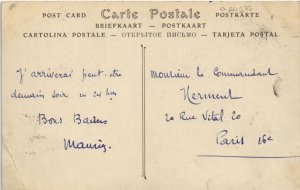 POST CARD Carte Postale POSTKARTE
BRIEFKAART — POSTKAART
CARTOLINA POSTALE — ОТКРЫТОЕ ПИСЬМО — TARJETA POSTAL
J'arriverai peut-être
demain soir
Bons Baisers
Monsieur le Commandant
Herment
20 Rue Vital 20
Paris 16e